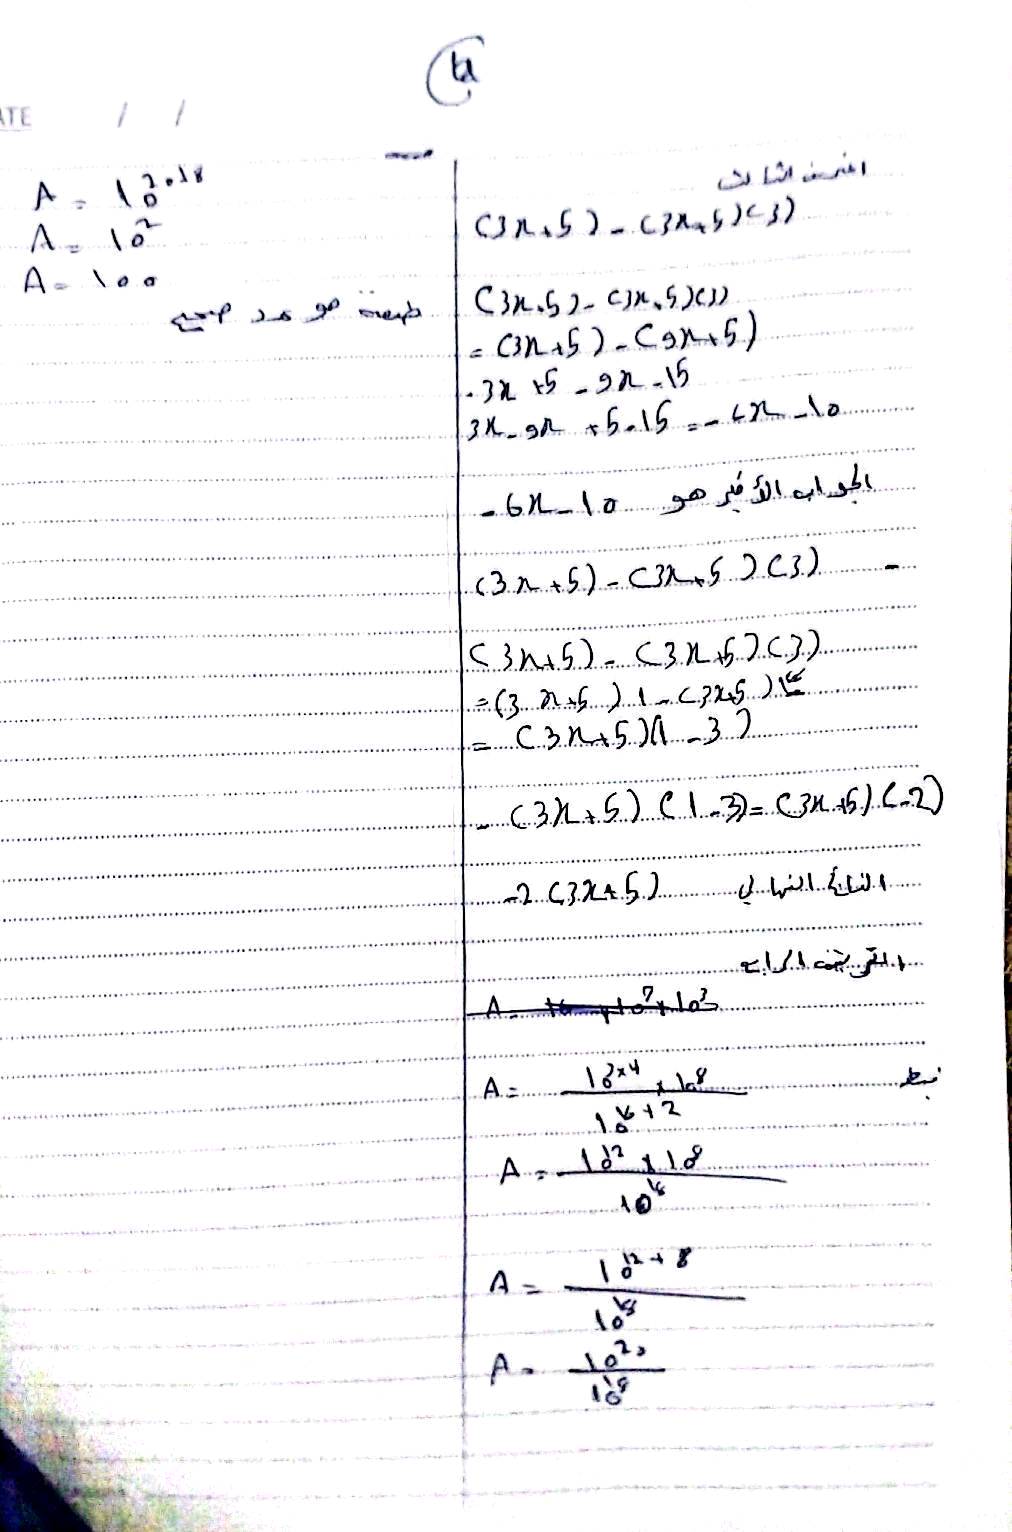 ATE / /
التمرين الثالث
(3x+5) - (3x+5)(3)
(3x+5) - (3x+5)(3)
= (3x+5) - (9x+5)
= 3x+5 - 9x - 15
3x - 9x + 5 - 15 = -6x - 10
الجواب الأخير هو -6x - 10
- (3x+5) - (3x+5)(3)
(3x+5) - (3x+5)(3)
= (3x+5)1 - (3x+5)
= (3x+5)(1-3)
= (3x+5)(1-3) = (3x+5)(-2)
الناتج النهائي -2(3x+5)
التمرين الرابع
نبسط A = 10^{3×4} × 10^8 / 10^{16+2}
A = 10^{12} × 10^8 / 10^{18}
A = 10^{12+8} / 10^{18}
A = 10^{20} / 10^{18}
A = 10^{20-18}
A = 10^2
A = 100
طبيعته هو عدد صحيح